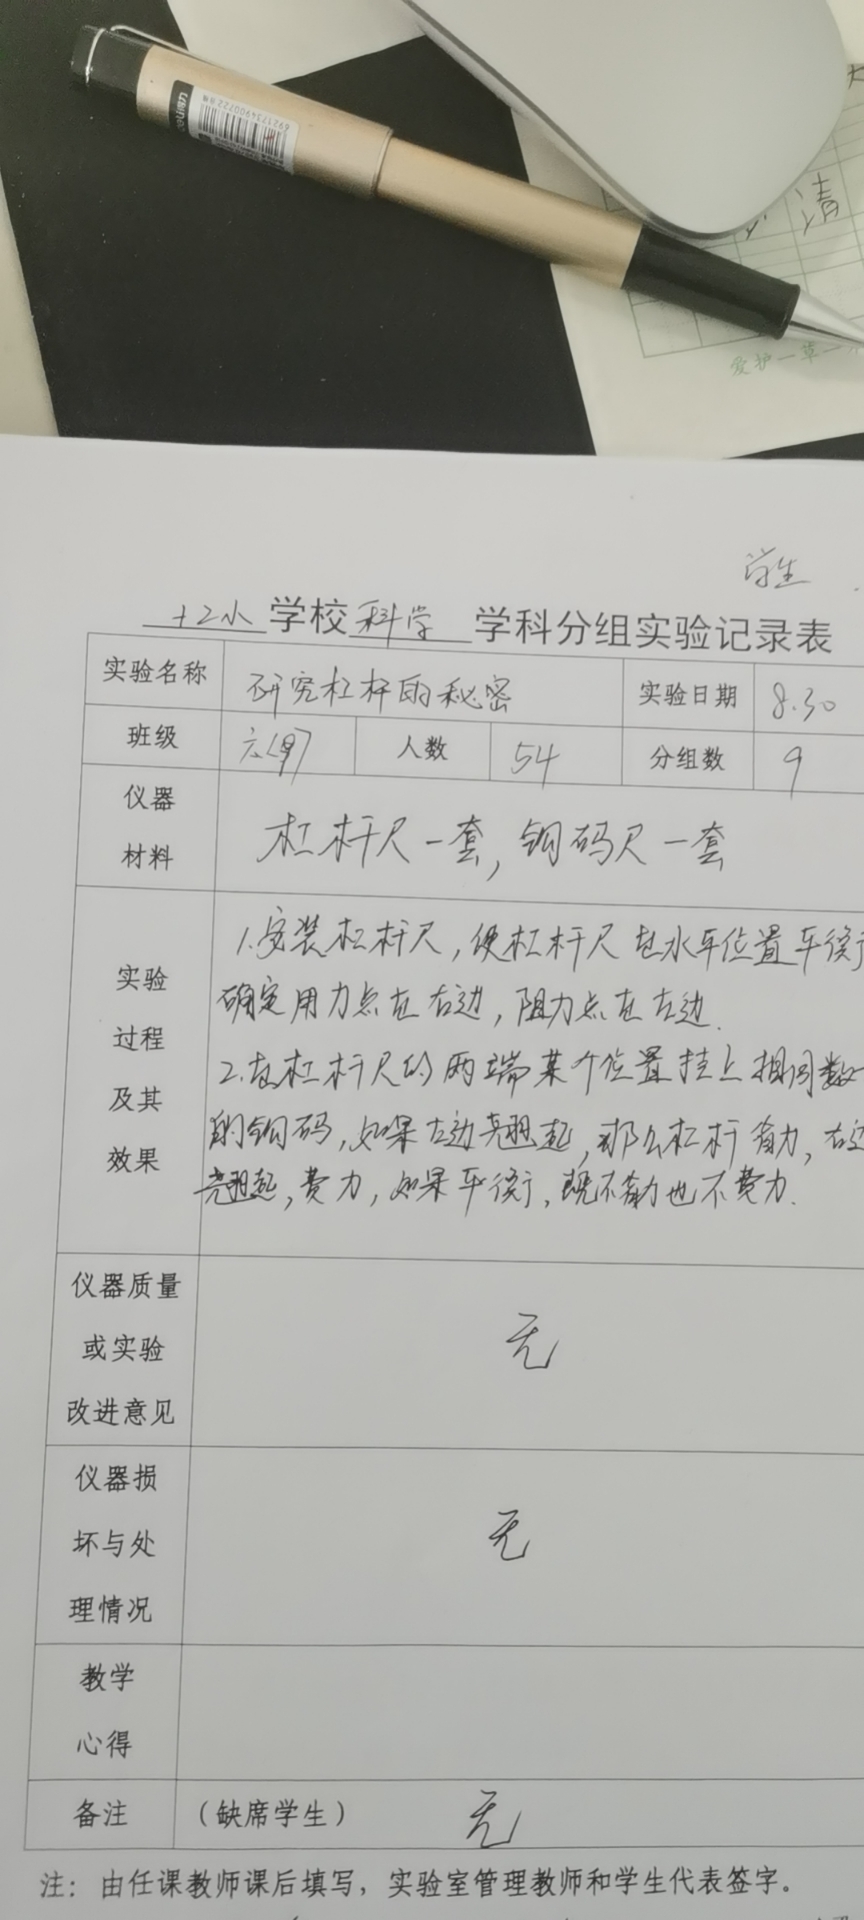 deli得力
6921734900722
清
爱护一草一
学生
十2小 学校 科学 学科分组实验记录表
实验名称 研究杠杆的秘密 实验日期 8.30
班级 人数 54 分组数 9
仪器
材料
杠杆尺一套,钩码尺一套
实验
过程
及其
效果
1.安装杠杆尺,使杠杆尺在水平位置平衡
确定用力点在右边,阻力点在左边.
2.在杠杆尺的两端某个位置挂上相同数
的钩码,如果左边翘起,那么杠杆省力,右边
翘起,费力,如果平衡,既不省力也不费力.
仪器质量
或实验
改进意见
无
仪器损
坏与处
理情况
无
教学
心得
备注 (缺席学生) 无
注:由任课教师课后填写,实验室管理教师和学生代表签字。